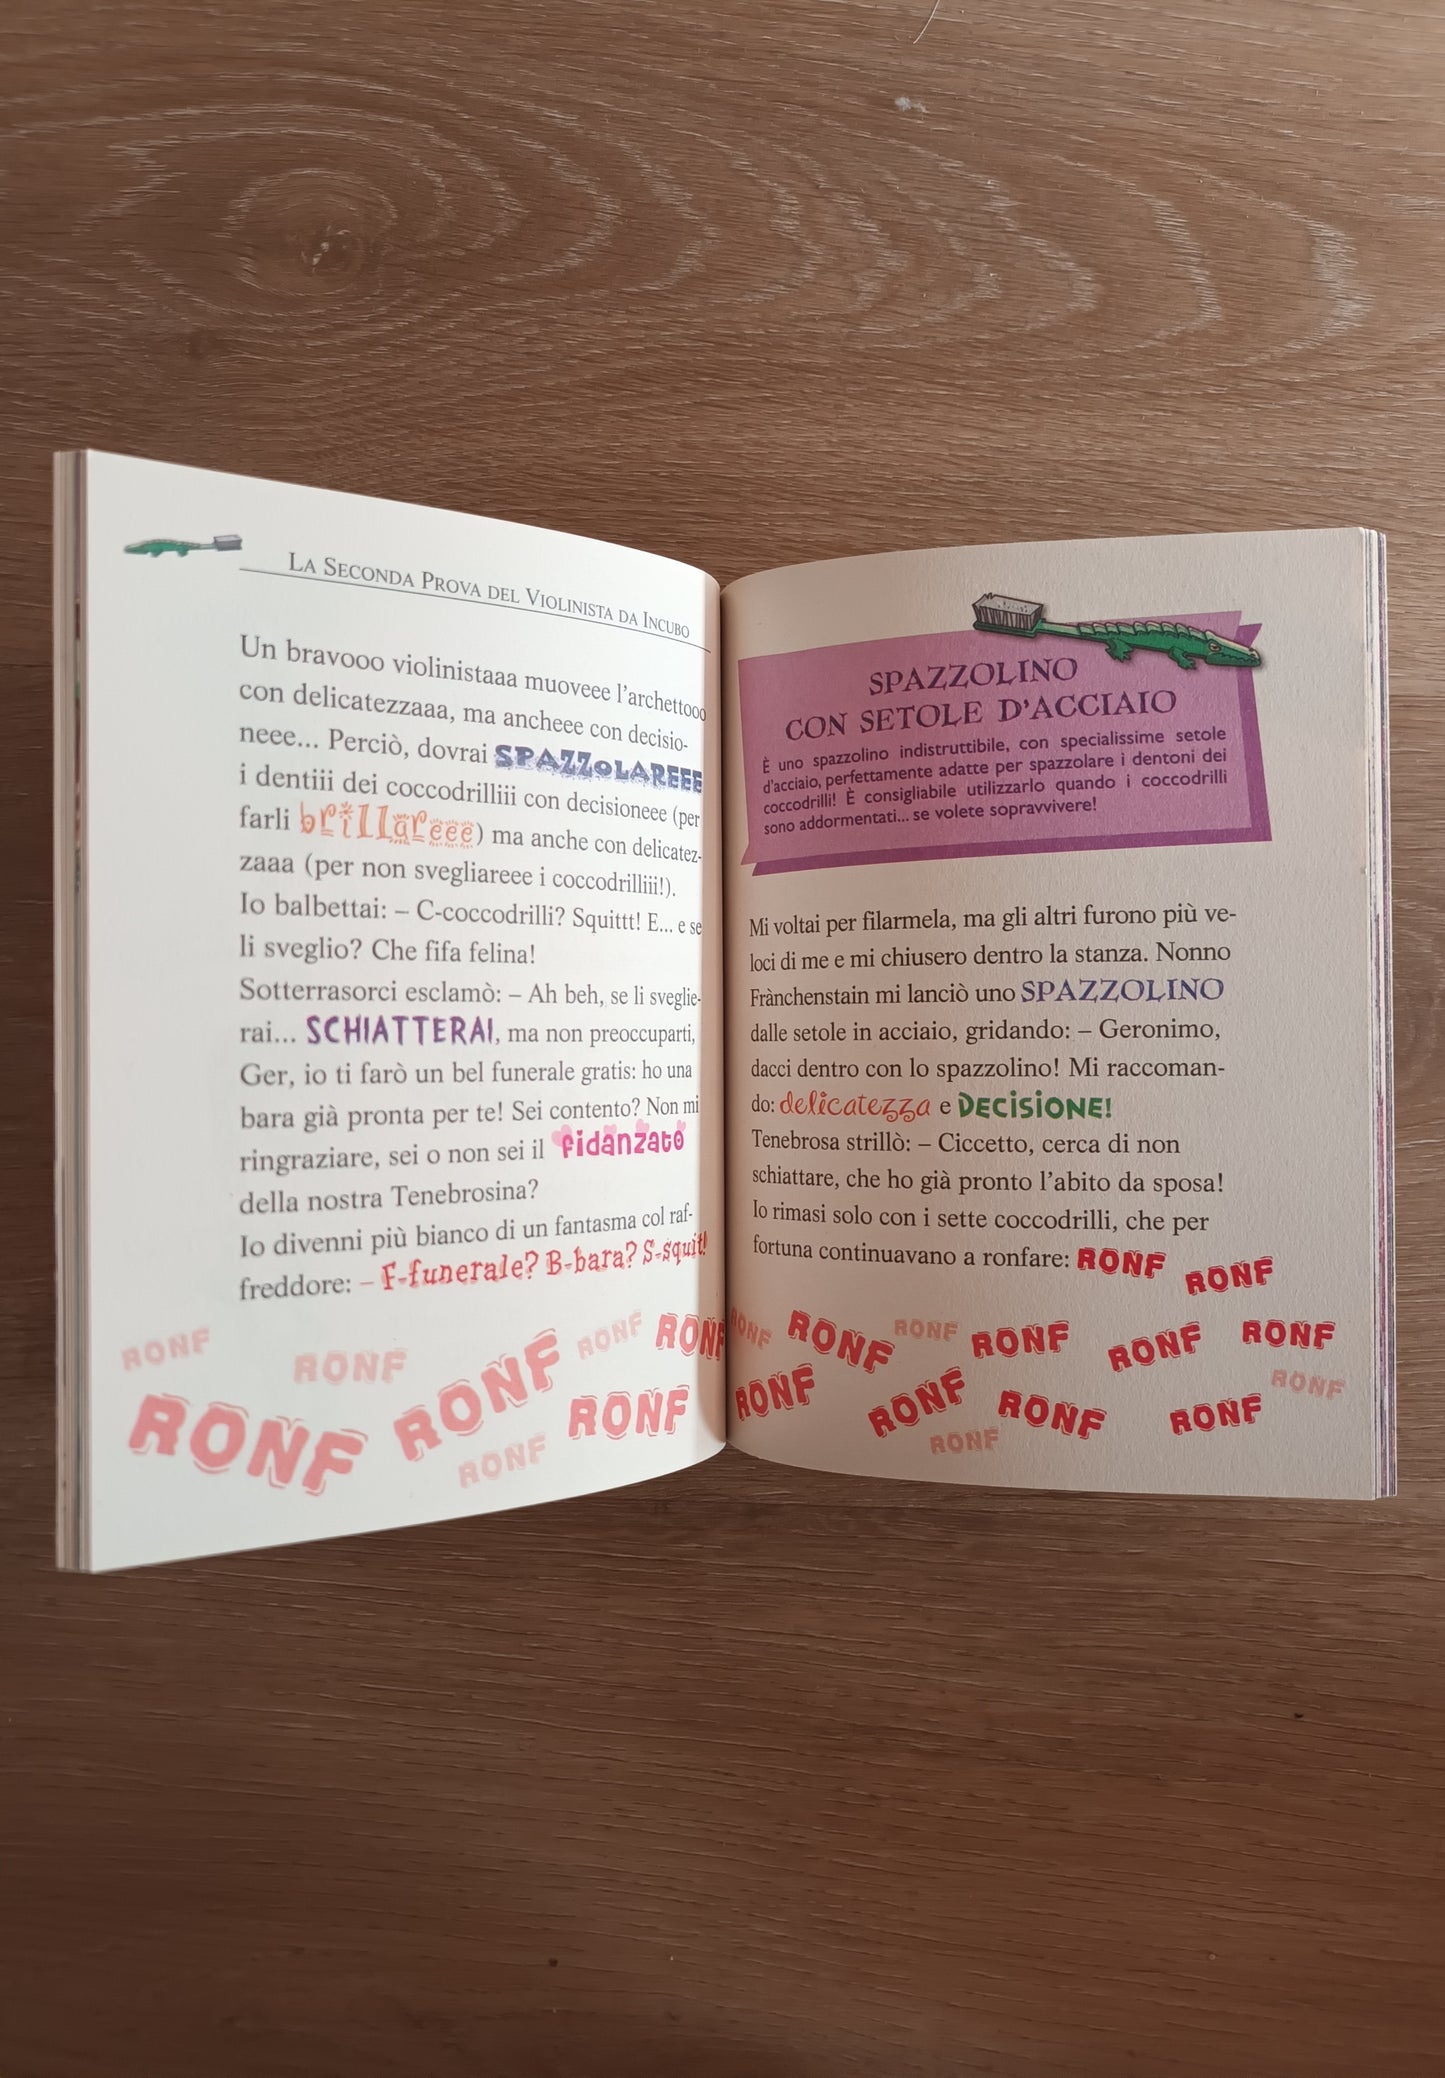 La Seconda Prova del Violinista da Incubo
Un bravooo violinistaaa muoveee l'archettooo
con delicatezzaaa, ma ancheee con decisio-
neee... Perciò, dovrai SPAZZOLAREEE
i dentiii dei coccodrilliii con decisioneee (per
farli brillareee) ma anche con delicatez-
zaaa (per non svegliareee i coccodrilliii!).
Io balbettai: – C-coccodrilli? Squittt! E... e se
li sveglio? Che fifa felina!
Sotterrasorci esclamò: – Ah beh, se li sveglie-
rai... SCHIATTERAI, ma non preoccuparti,
Ger, io ti farò un bel funerale gratis: ho una
bara già pronta per te! Sei contento? Non mi
ringraziare, sei o non sei il fidanzato
della nostra Tenebrosina?
Io divenni più bianco di un fantasma col raf-
freddore: – F-funerale? B-bara? S-squit!
RONF RONF RONF RONF RONF
RONF RONF RONF RONF
SPAZZOLINO
CON SETOLE D'ACCIAIO
È uno spazzolino indistruttibile, con specialissime setole
d'acciaio, perfettamente adatte per spazzolare i dentoni dei
coccodrilli! È consigliabile utilizzarlo quando i coccodrilli
sono addormentati... se volete sopravvivere!
Mi voltai per filarmela, ma gli altri furono più ve-
loci di me e mi chiusero dentro la stanza. Nonno
Frànchenstain mi lanciò uno SPAZZOLINO
dalle setole in acciaio, gridando: – Geronimo,
dacci dentro con lo spazzolino! Mi raccoman-
do: delicatezza e DECISIONE!
Tenebrosa strillò: – Ciccetto, cerca di non
schiattare, che ho già pronto l'abito da sposa!
Io rimasi solo con i sette coccodrilli, che per
fortuna continuavano a ronfare: RONF RONF
RONF RONF RONF RONF RONF RONF
RONF RONF RONF RONF RONF RONF